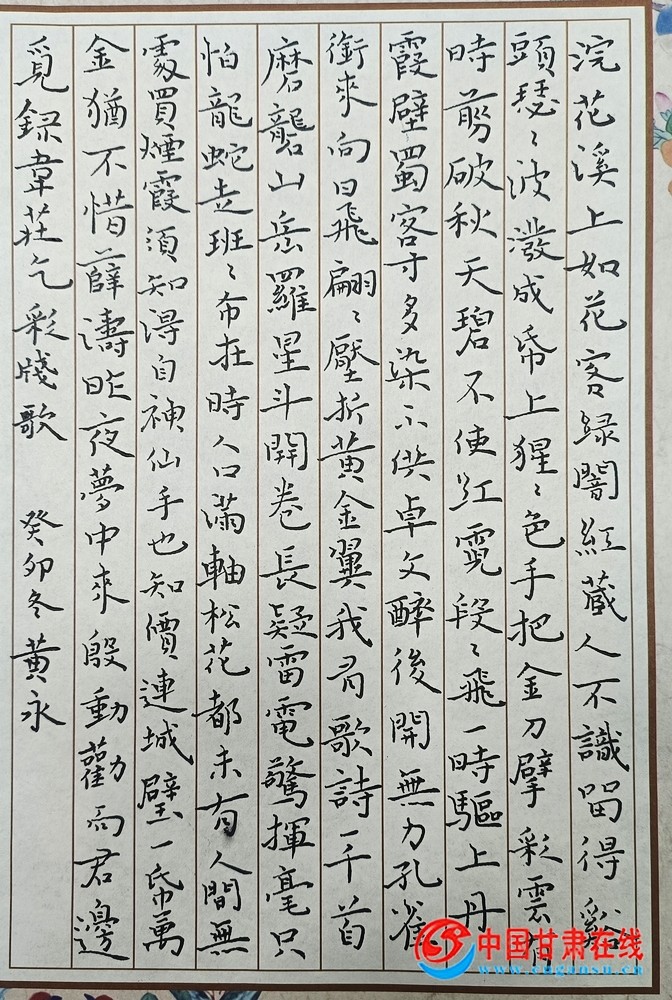 浣花溪上如花客緑闇紅蔵人不識留得谿
頭瑟〻波潑成帋上猩〻色手把金刀擘彩雲有
時剪破秋天碧不使紅霓段〻飛一時驅上丹
霞壁蜀客才多染不供卓文醉後開無力孔雀
銜來向日飛翩〻壓折黃金翼我有歌詩一千首
磨礱山岳羅星斗開卷長疑雷電驚揮毫只
怕龍蛇走班〻布在時人口滿軸松花都未有人間無
處買煙霞須知得自神仙手也知價連城璧一帋萬
金猶不惜薛濤昨夜夢中來殷動勸向君邊
覓録韋莊乞彩牋歌 癸卯冬黃永
中国甘肃在线